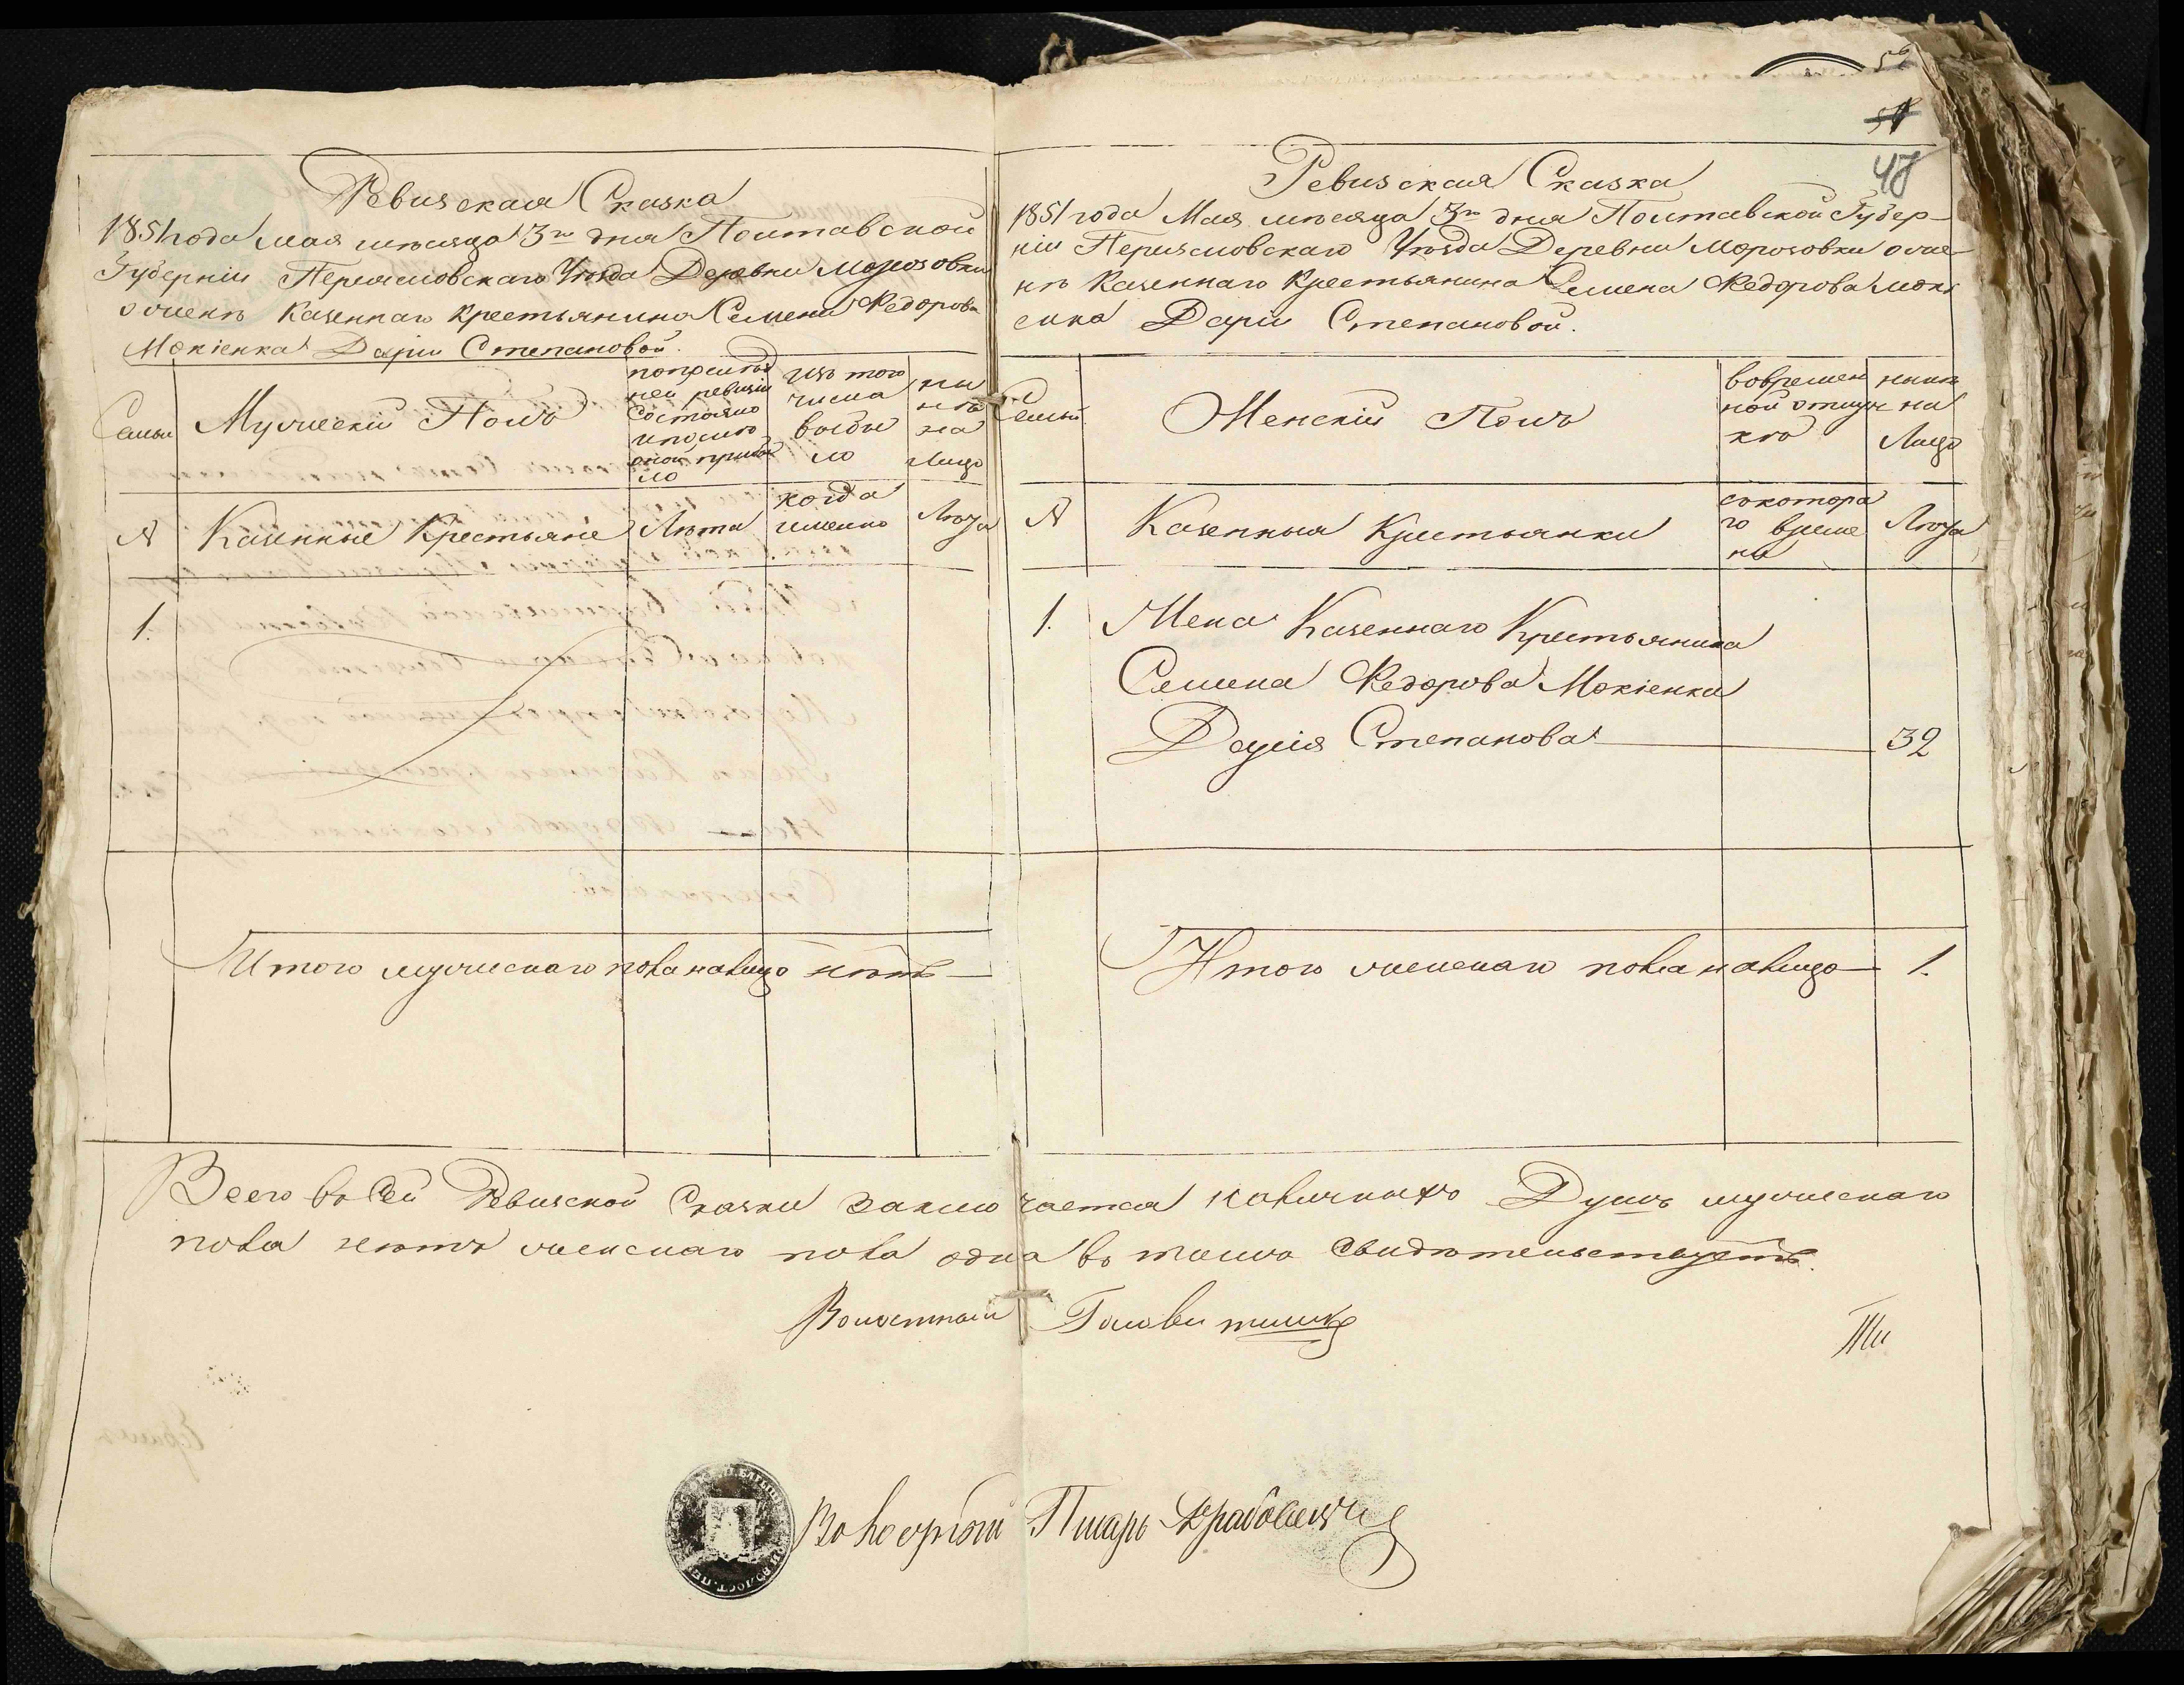 Ревизская Сказка
1851 года мая месяца 3го дня Полтавской
Губерніи Переясловскаго Уѣзда Деревни Морозовки
о женѣ Казеннаго крестьянина Семена Федорова
Мокіенка Даріи Степановой.
Семьи
Мужескій Полъ
по послѣд
ней ревизіи
состояло
и после
оной прибы
ло
изъ того
числа
выбы
ло
ны
нѣ
на
лицо
№
Казенные Крестьяне
Лѣта
когда
именно
Лѣта
1.
Итого мужескаго пола налицо нѣтъ
56
48
Ревизская Сказка
1851 года Мая месяца 3го дня Полтавской Губер-
ніи Переясловскаго Уѣзда Деревни Морозовки о же-
нѣ Казеннаго Крестьянина Семена Федорова Мокі
енка Даріи Степановой.
Семьи
Женскій Полъ
во времен
ной отлуч
кѣ
нынѣ
на
Лицо
№
Казенныя Крестьянки
съ котора
го време
ни
Лѣта
1.
Жена Казеннаго Крестьянина
Семена Федорова Мокіенка
Дарія Степанова 32
Итого женскаго пола налицо 1.
Всего в сей Ревизской Сказки заключается наличныхъ Душъ мужескаго
пола нетъ женскаго пола одна в томъ свидѣтельствуетъ.
Волостный Голова
Волостный Писарь